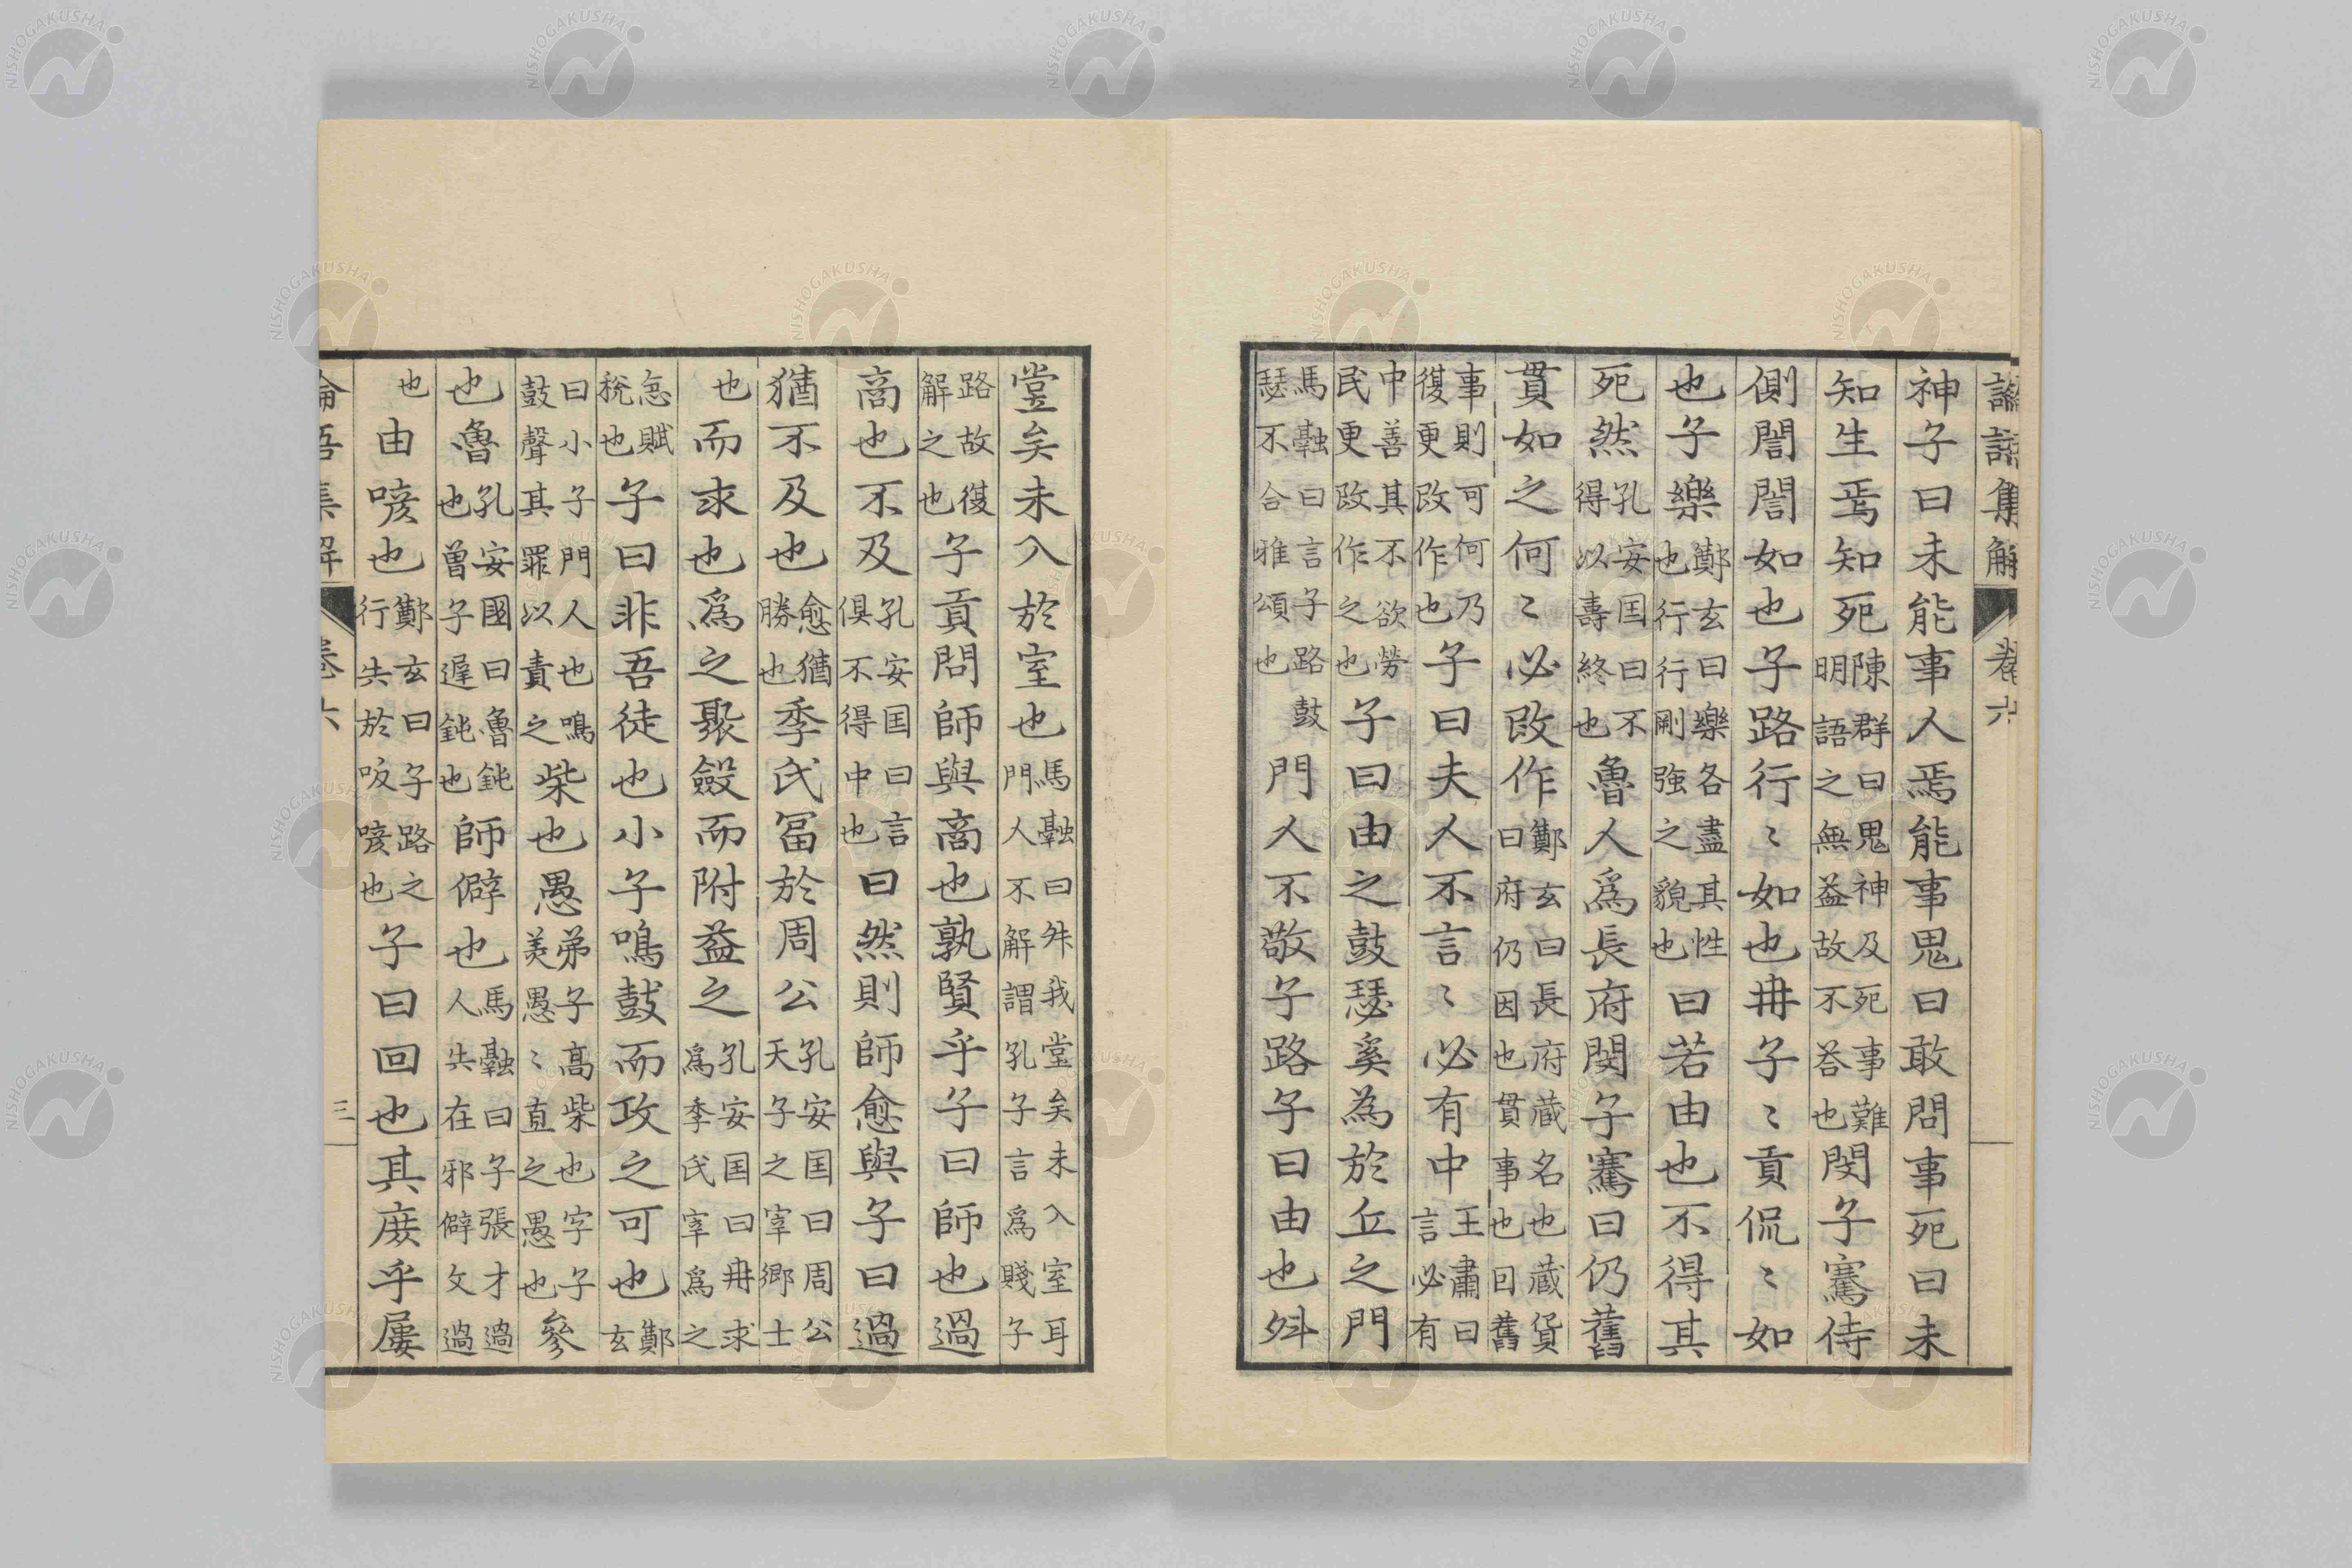 論語集解 卷六
神子曰未能事人焉能事鬼曰敢問事死曰未
知生焉知死陳群曰鬼神及死事難明語之無益故不荅也閔子騫侍
側誾誾如也子路行〻如也冉子〻貢侃〻如
也子樂鄭玄曰樂各盡其性也行行剛強之貌也曰若由也不得其
死然孔安囯曰不得以壽終也魯人爲長府閔子騫曰仍舊
貫如之何〻必改作鄭玄曰長府蔵名也蔵貨曰府仍因也貫事也因舊
事則可何乃復更改作也子曰夫人不言〻必有中王肅曰言必有
中善其不欲勞民更改作之也子曰由之鼓瑟奚為於丘之門
馬融曰言子路鼓瑟不合雅頌也門人不敬子路子曰由也升
堂矣未入於室也馬融曰升我堂矣未入室耳門人不解謂孔子言爲賤子
路故復解之也子貢問師與商也孰賢乎子曰師也過
商也不及孔安囯曰言俱不得中也曰然則師愈與子曰過
猶不及也愈猶勝也季氏冨於周公孔安囯曰周公天子之宰卿士
也而求也爲之聚斂而附益之孔安囯曰冉求爲季氏宰爲之
急賦稅也子曰非吾徒也小子鳴鼓而攻之可也鄭玄
曰小子門人也鳴鼓聲其罪以責之柴也愚弟子高柴也字子羙愚〻直之愚也參
也魯孔安國曰魯鈍也曽子遲鈍也師僻也馬融曰子張才過人失在邪僻文過
也由喭也鄭玄曰子路之行失於吸喭也子曰回也其庶乎屢
論語集解 卷六 三
NISHOGAKUSHA